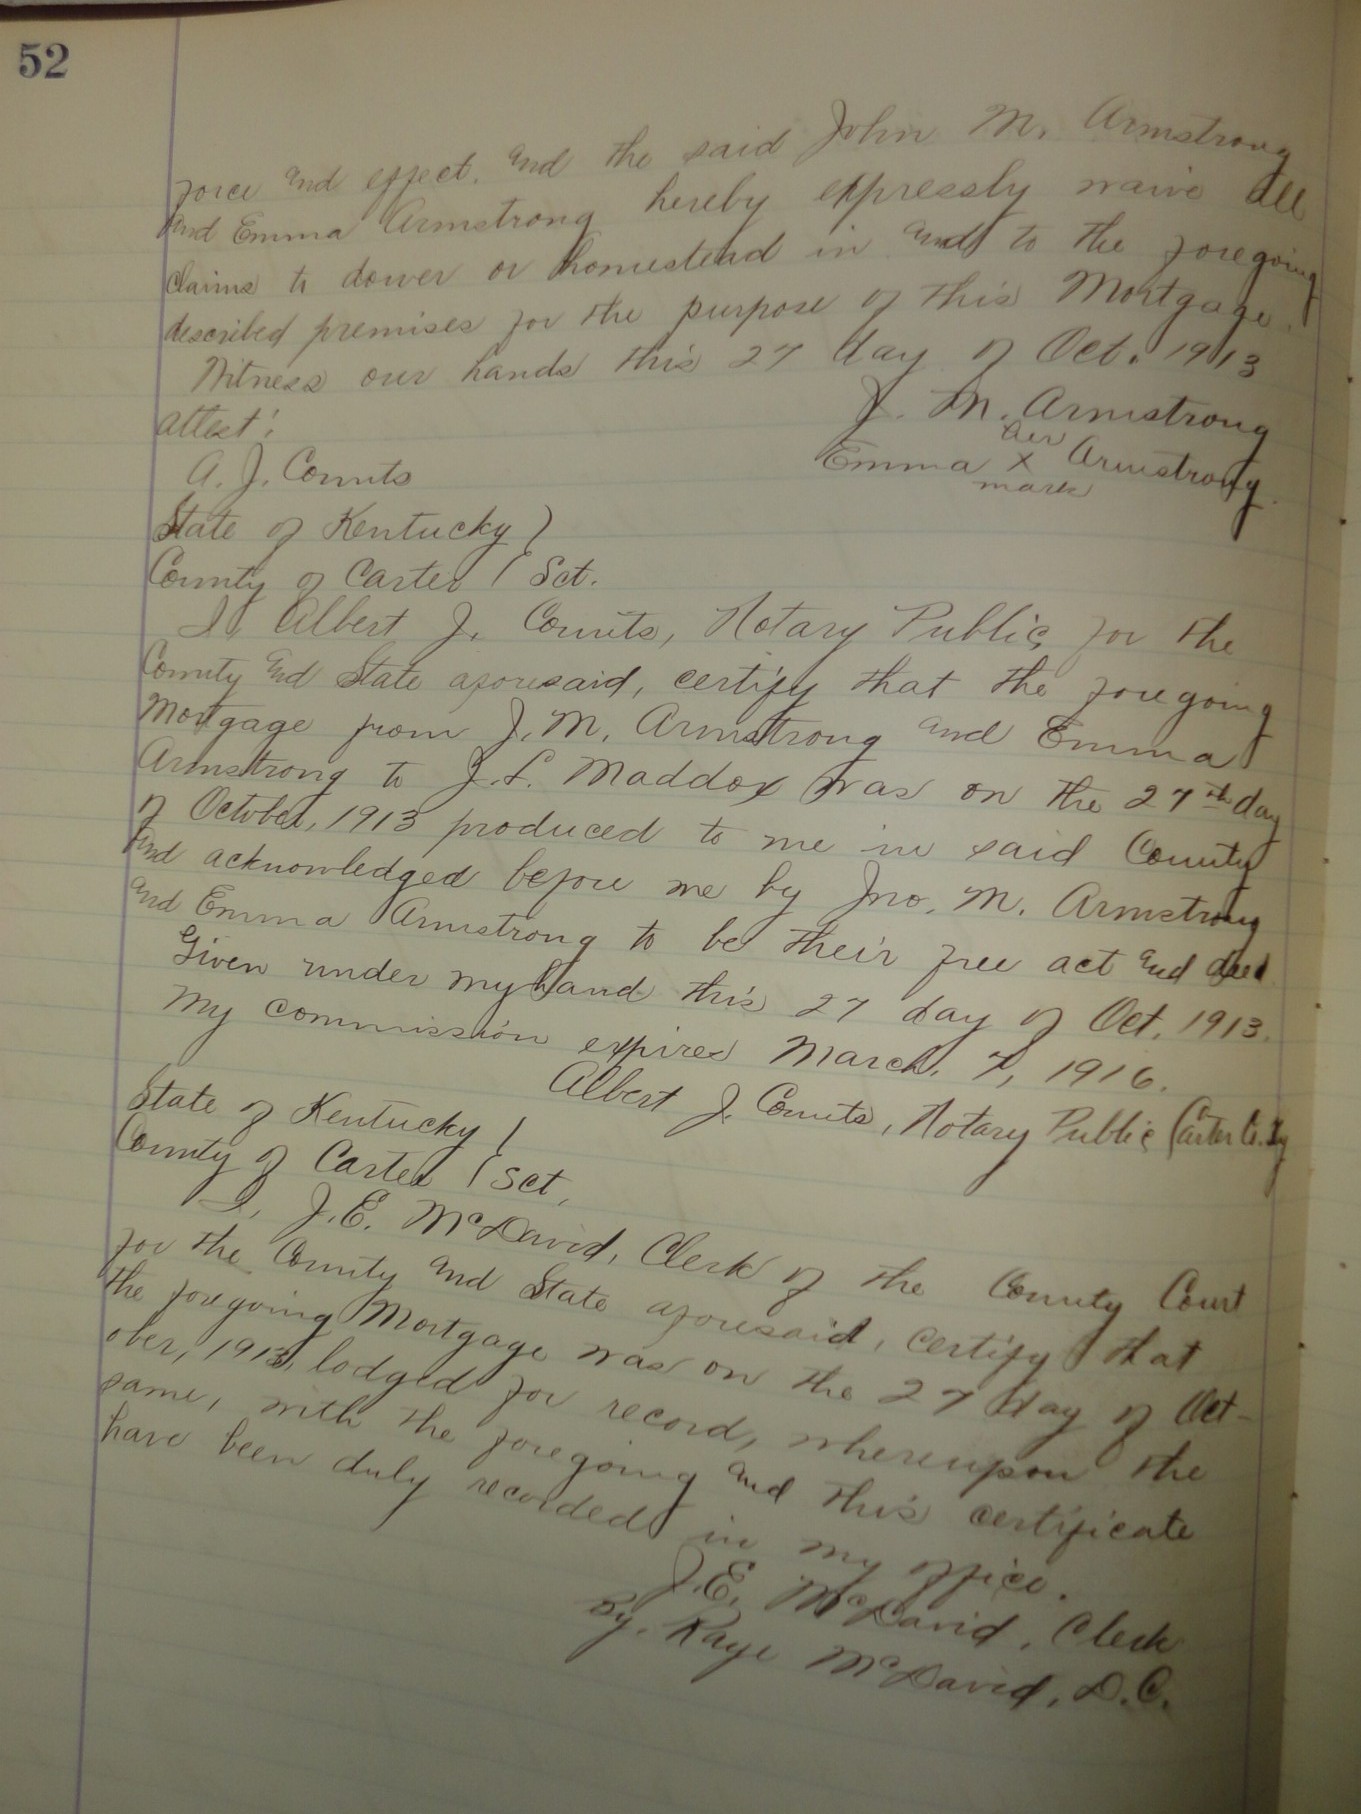 52
force and effect. And the said John M. Armstrong
and Emma Armstrong hereby expressly waive all
claims to dower or homestead in and to the foregoing
described premises for the purpose of this Mortgage.
Witness our hands this 27 day of Oct. 1913
attest:
J. M. Armstrong
A. J. Counts
her
Emma X Armstrong.
mark
State of Kentucky )
County of Carter ( Sct.
I, Albert J. Counts, Notary Public for the
County and State aforesaid, certify that the foregoing
Mortgage from J. M. Armstrong and Emma
Armstrong to J. L. Maddox was on the 27th day
of October, 1913 produced to me in said County
and acknowledged before me by Jno. M. Armstrong
and Emma Armstrong to be their free act and deed
Given under my hand this 27 day of Oct. 1913.
My commission expires March. 7, 1916.
Albert J. Counts, Notary Public Carter Co. Ky
State of Kentucky )
County of Carter ( Sct.
I, J. E. McDavid, Clerk of the County Court
for the County and State aforesaid, certify that
the foregoing Mortgage was on the 27 day of Oct-
ober, 1913, lodged for record, whereupon the
same, with the foregoing and this certificate
have been duly recorded in my office.
J. E. McDavid, Clerk
By. Kaye McDavid, D. C.